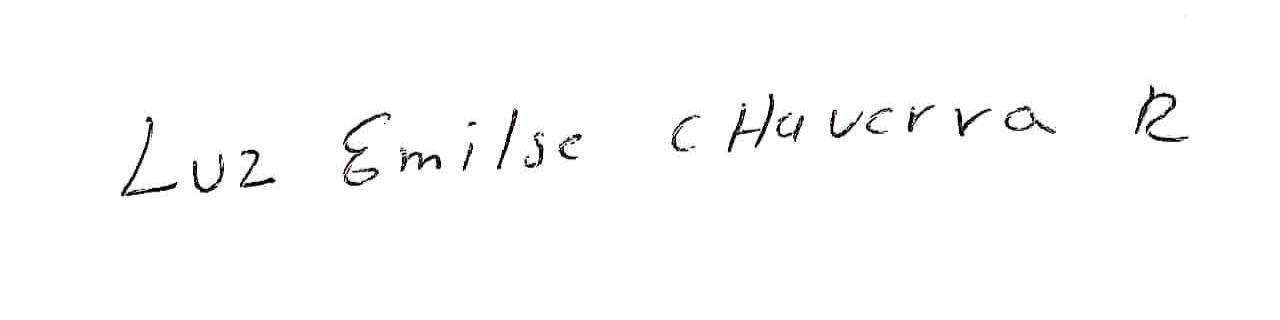 Luz Emilse CHaverra R